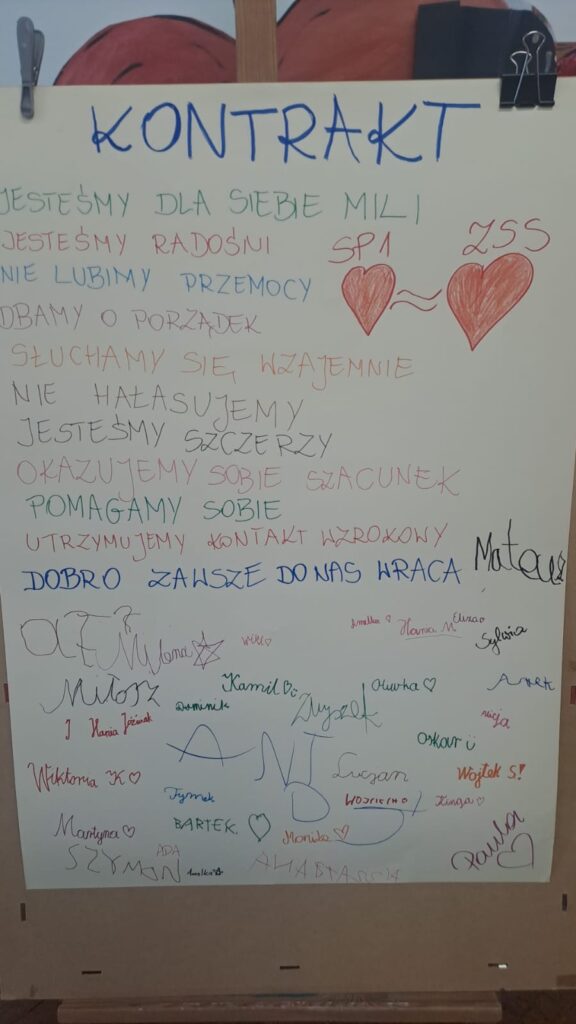 KONTRAKT
JESTEŚMY DLA SIEBIE MILI
JESTEŚMY RADOŚNI
SP1 ZSS
NIE LUBIMY PRZEMOCY
DBAMY O PORZĄDEK
SŁUCHAMY SIĘ WZAJEMNIE
NIE HAŁASUJEMY
JESTEŚMY SZCZERZY
OKAZUJEMY SOBIE SZACUNEK
POMAGAMY SOBIE
UTRZYMUJEMY KONTAKT WZROKOWY
DOBRO ZAWSZE DO NAS WRACA
Mateusz
Milana
Amelka Hania M Eliza
Sylwia
Miłosz Dominik Kamil Oliwka Antek
Hania Zbyszek
Oskar
Wiktoria K Lucjan Wojtek S!
Tymek WOJCIECH Kinga
Martyna BARTEK Monika Paula
SZYMON ADA Amelka